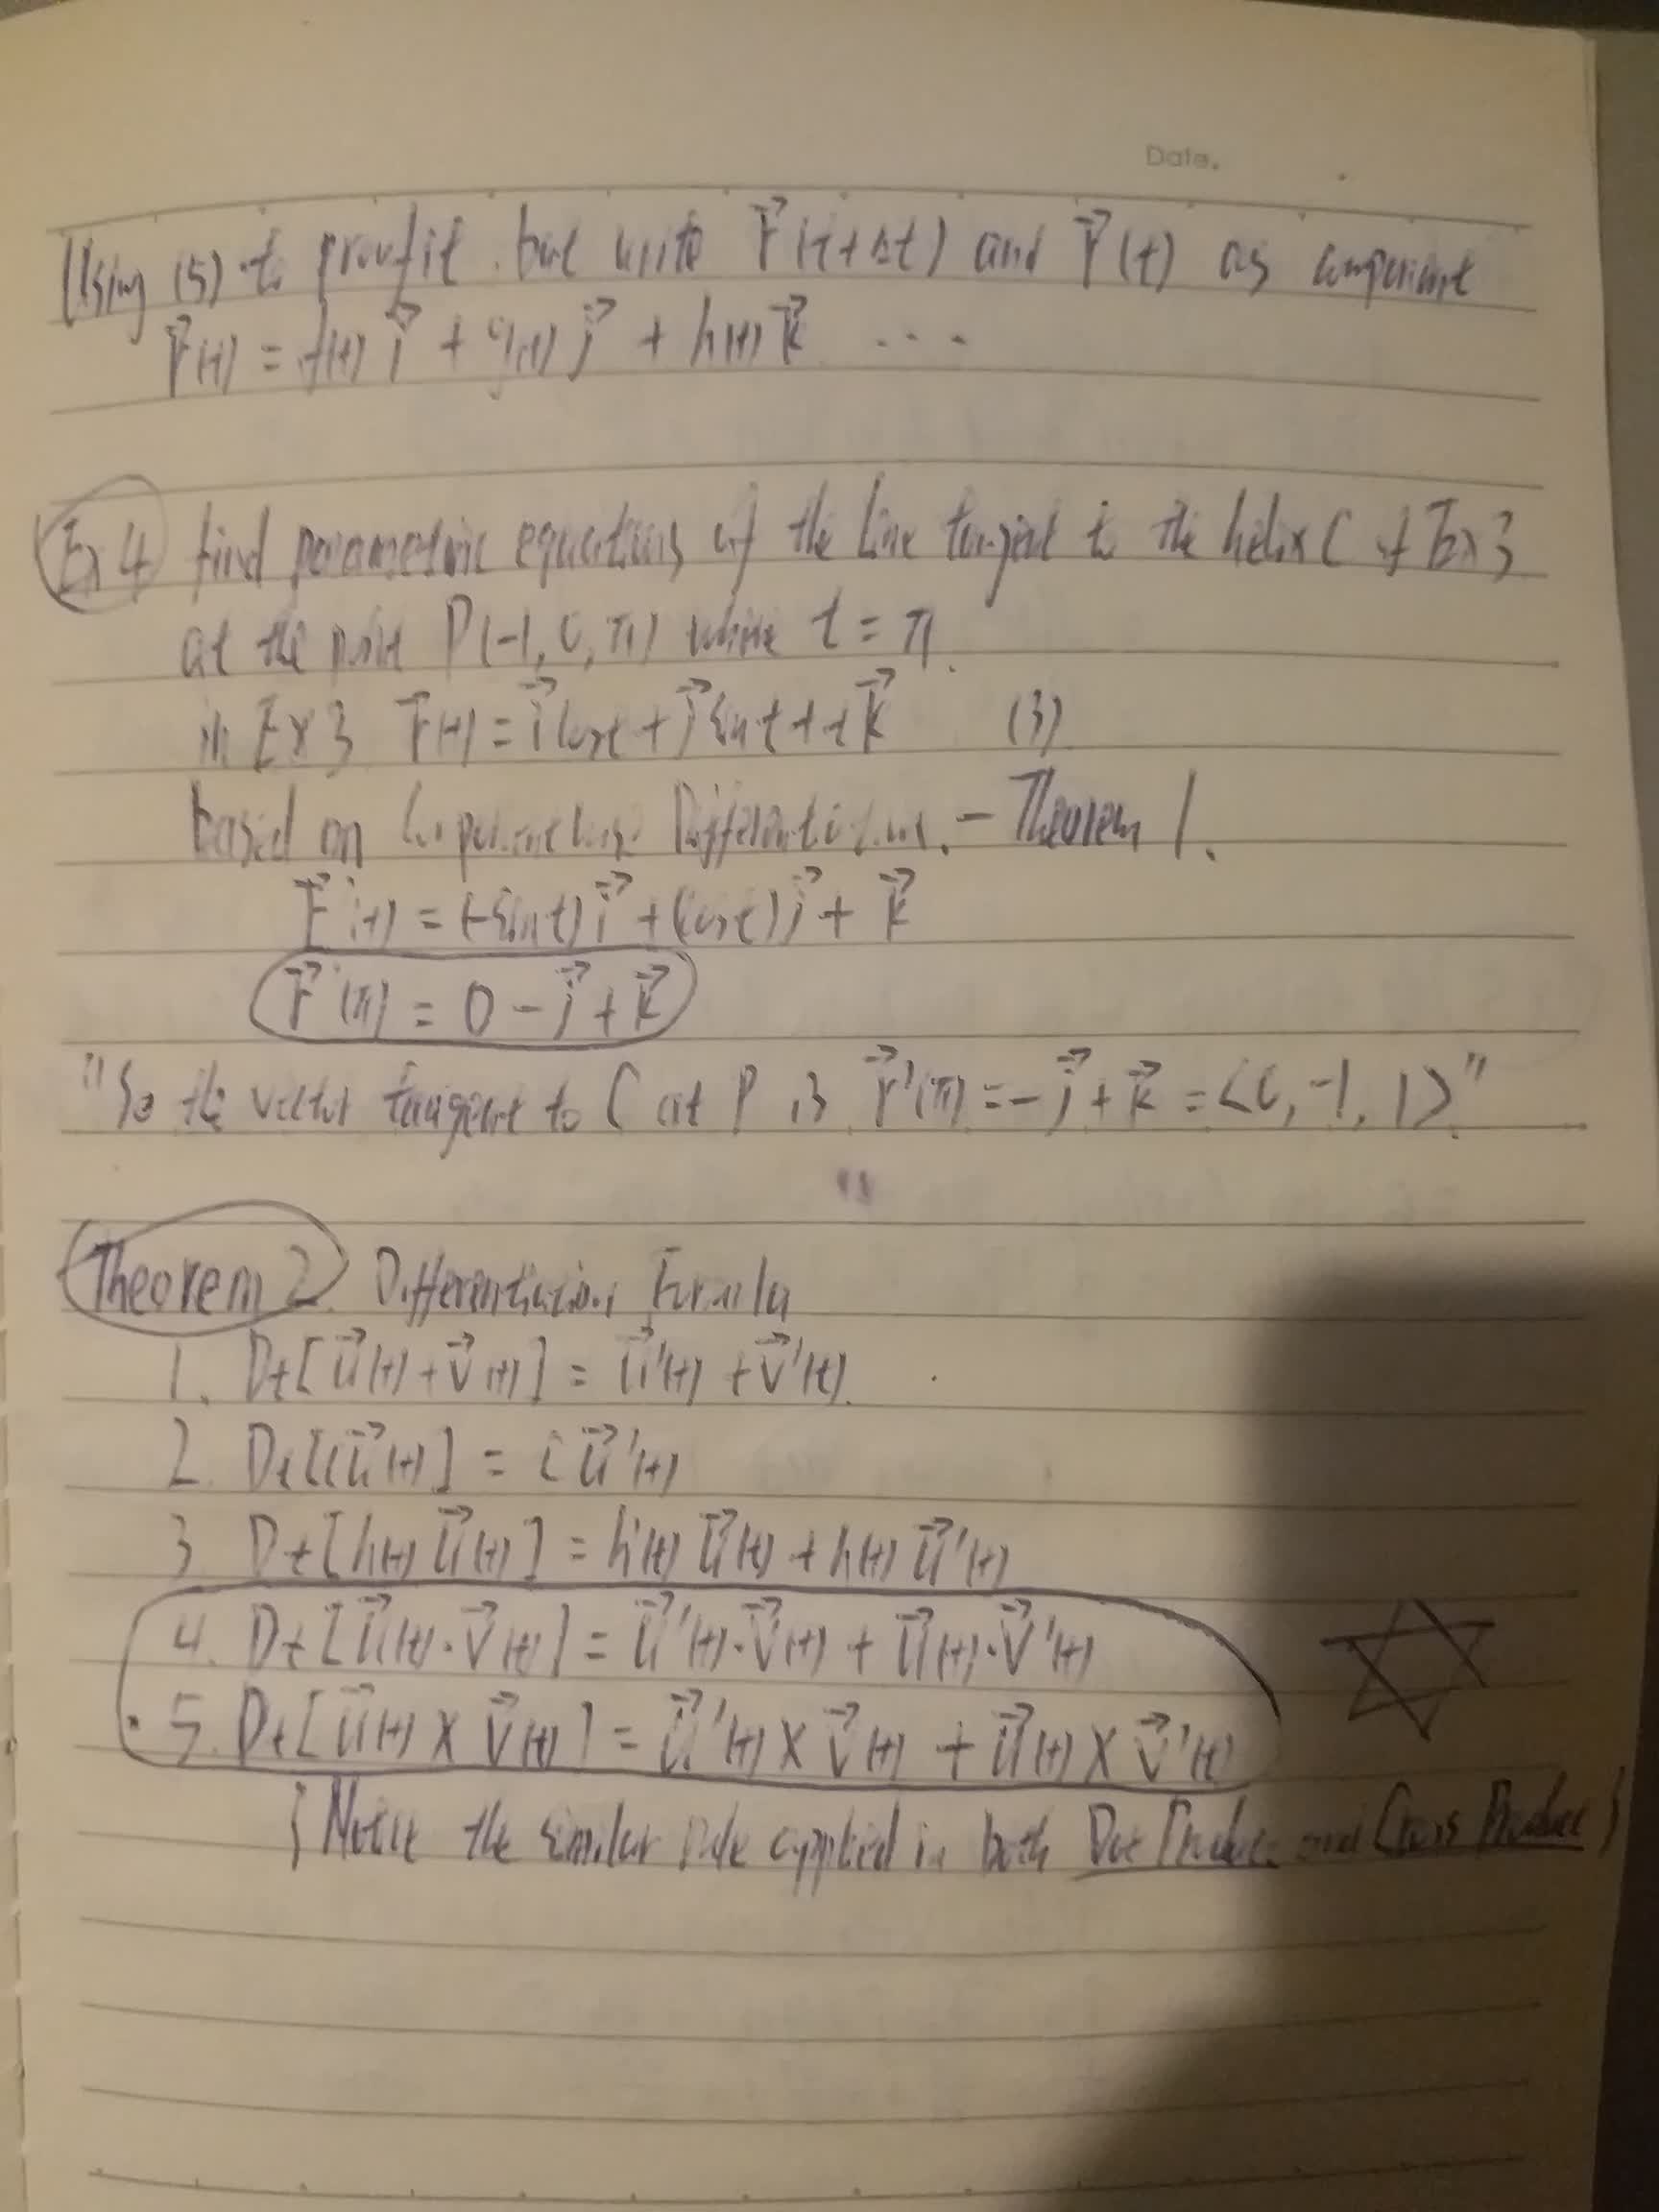 Date.
Using (5) to proof it. but write r⃗(t+Δt) and r⃗(t) as component
r⃗(t) = f(t) i⃗ + g(t) j⃗ + h(t) k⃗ ...
Ex 4 find parametric equations of the line tangent to the helix C of Ex 3
at the point P(-1, 0, π) where t = π.
in Ex 3 r⃗(t) = i⃗ cos t + j⃗ sin t + t k⃗ (3)
based on Componentwise Differentiation. - Theorem 1.
r⃗'(t) = (-sin t) i⃗ + (cos t) j⃗ + k⃗
r⃗'(π) = 0 - j⃗ + k⃗
"So the vector tangent to C at P is r⃗'(π) = - j⃗ + k⃗ = <0, -1, 1>."
Theorem 2. Differentiation Formula
1. Dt[u⃗(t) + v⃗(t)] = u⃗'(t) + v⃗'(t).
2. Dt[c u⃗(t)] = c u⃗'(t)
3. Dt[h(t) u⃗(t)] = h'(t) u⃗(t) + h(t) u⃗'(t)
4. Dt[u⃗(t) · v⃗(t)] = u⃗'(t) · v⃗(t) + u⃗(t) · v⃗'(t)
5. Dt[u⃗(t) × v⃗(t)] = u⃗'(t) × v⃗(t) + u⃗(t) × v⃗'(t)
{ Notice the similar rule applied in both Dot Product and Cross Product }